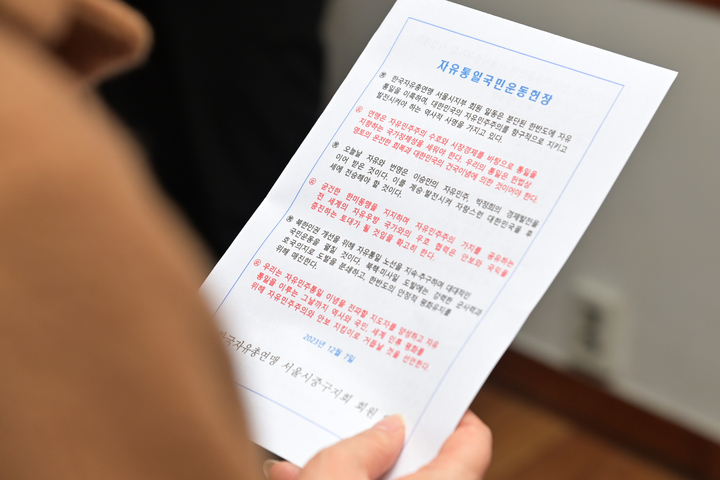 자유통일국민운동헌장
㉮ 한국자유총연맹 서울시지부 회원 일동은 분단된 한반도에 자유
통일을 이룩하여, 대한민국의 자유민주주의를 항구적으로 지키고
발전시켜야 하는 역사적 사명을 가지고 있다.
㉯ 연맹은 자유민주주의 수호와 시장경제를 바탕으로 통일을
지향하는 국가정체성을 세워야 한다. 우리의 통일은 헌법상
영토의 온전한 회복과 대한민국의 건국이념에 의한 것이어야 한다.
㉰ 오늘날 자유와 번영은 이승만의 자유민주, 박정희의 경제발전을
이어 받은 것이다. 이를 계승·발전시켜 자랑스런 대한민국을 후
세에 전승해야 할 것이다.
㉱ 굳건한 한미동맹을 지지하며 자유민주주의 가치를 공유하는
전 세계의 자유우방 국가와의 우호 협력은 안보와 국익을
증진하는 토대가 될 것임을 확고히 한다.
㉲ 북한인권 개선을 위해 자유통일 노선을 지속·추구하며 대대적인
국민운동을 펼칠 것이다. 북핵·미사일 도발에는 강력한 군사력과
호국의지로 도발을 분쇄하고, 한반도의 안정적 평화유지를
위해 매진한다.
㉳ 우리는 자유민주통일 이념을 전파할 지도자를 양성하고 자유
통일을 이루는 그날까지 역사와 국민, 세계 인류 평화를
위해 자유민주주의와 안보 지킴이로 거듭날 것을 선언한다.
2023년 12월 7일
한국자유총연맹 서울시중구지회 회원